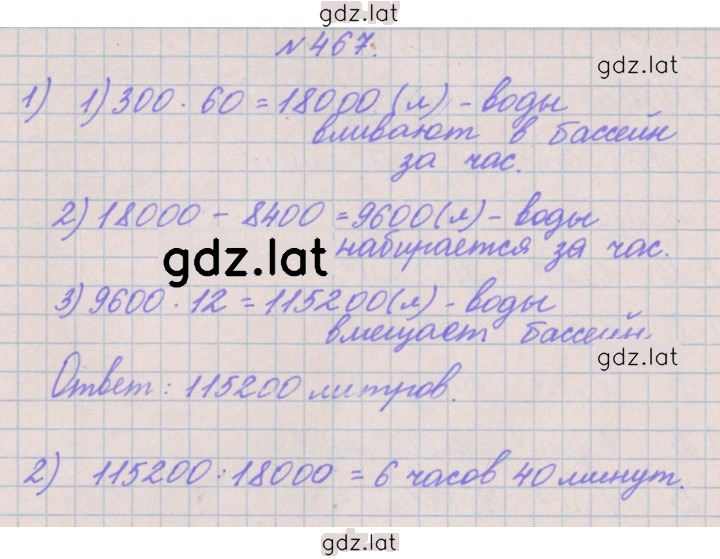 gdz.lat
№467.
gdz.lat
1) 1) 300 · 60 = 18000 (л) - воды
вливают в бассейн
за час.
2) 18000 - 8400 = 9600 (л) - воды
набирается за час.
gdz.lat
3) 9600 · 12 = 115200 (л) - воды
вмещает бассейн
gdz.lat
Ответ: 115200 литров.
2) 115200 : 18000 = 6 часов 40 минут.
gdz.lat